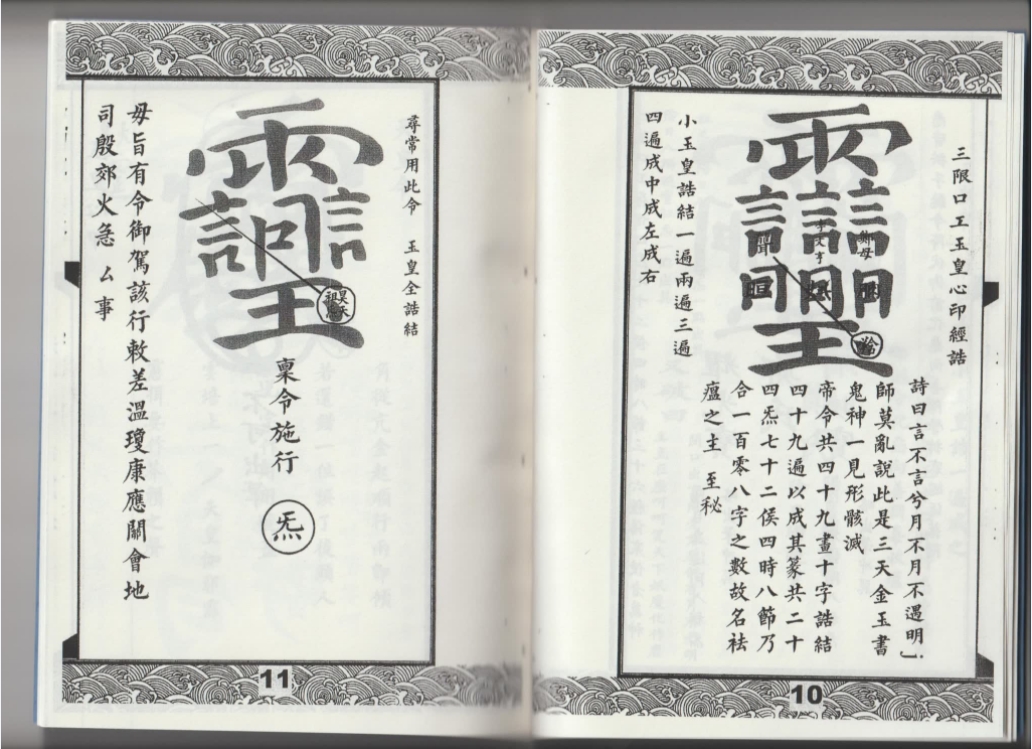 三限口工玉皇心印經誥
詩曰言不言兮月不月不遇明」
師莫亂說此是三天金玉書
鬼神一見形骸滅
帝令共四十九畫十字誥結
四十九遍以成其篆共二十
四炁七十二侯四時八節乃
合一百零八字之數故名祛
瘟之主 至秘
小玉皇誥結一遍兩遍三遍
四遍成中成左成右
10
尋常用此令 玉皇全誥結
昊天
稟令施行
炁
毋旨有令御駕該行敕差溫瓊康應關會地
司殷郊火急 厶事
11